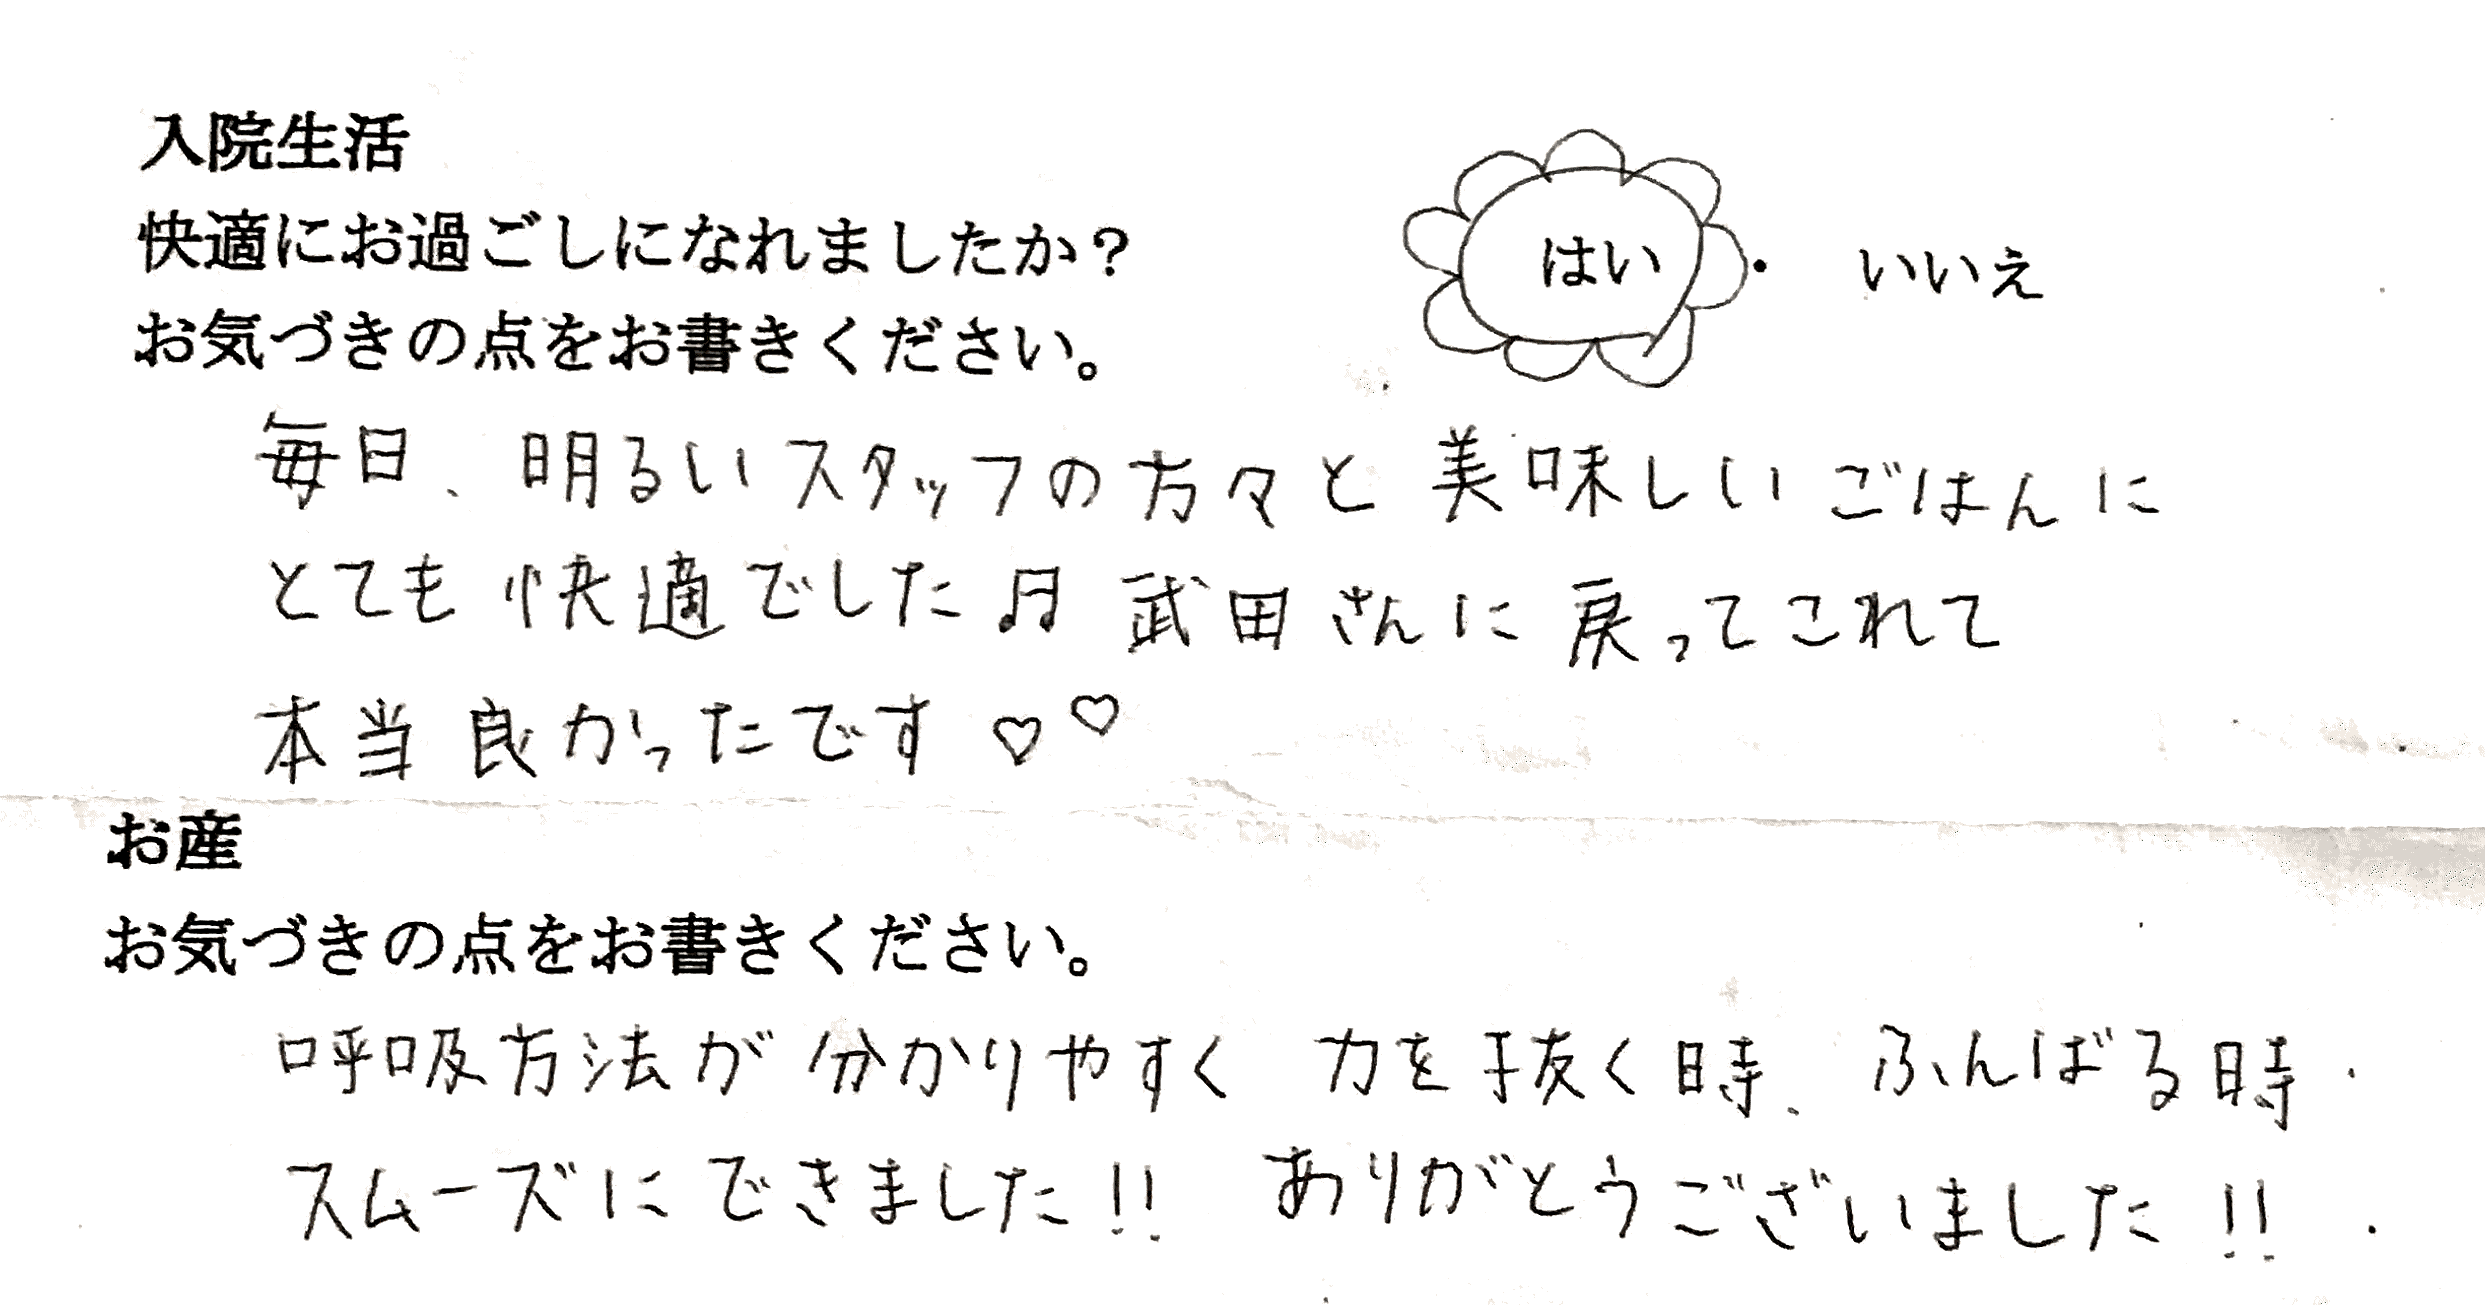 入院生活
快適にお過ごしになれましたか？ はい ・ いいえ
お気づきの点をお書きください。
毎日、明るいスタッフの方々と美味しいごはんに
とても快適でした♫ 武田さんに戻ってこれて
本当良かったです♡♡
お産
お気づきの点をお書きください。
呼吸方法が分かりやすく 力を抜く時、ふんばる時
スムーズにできました!! ありがとうございました!!